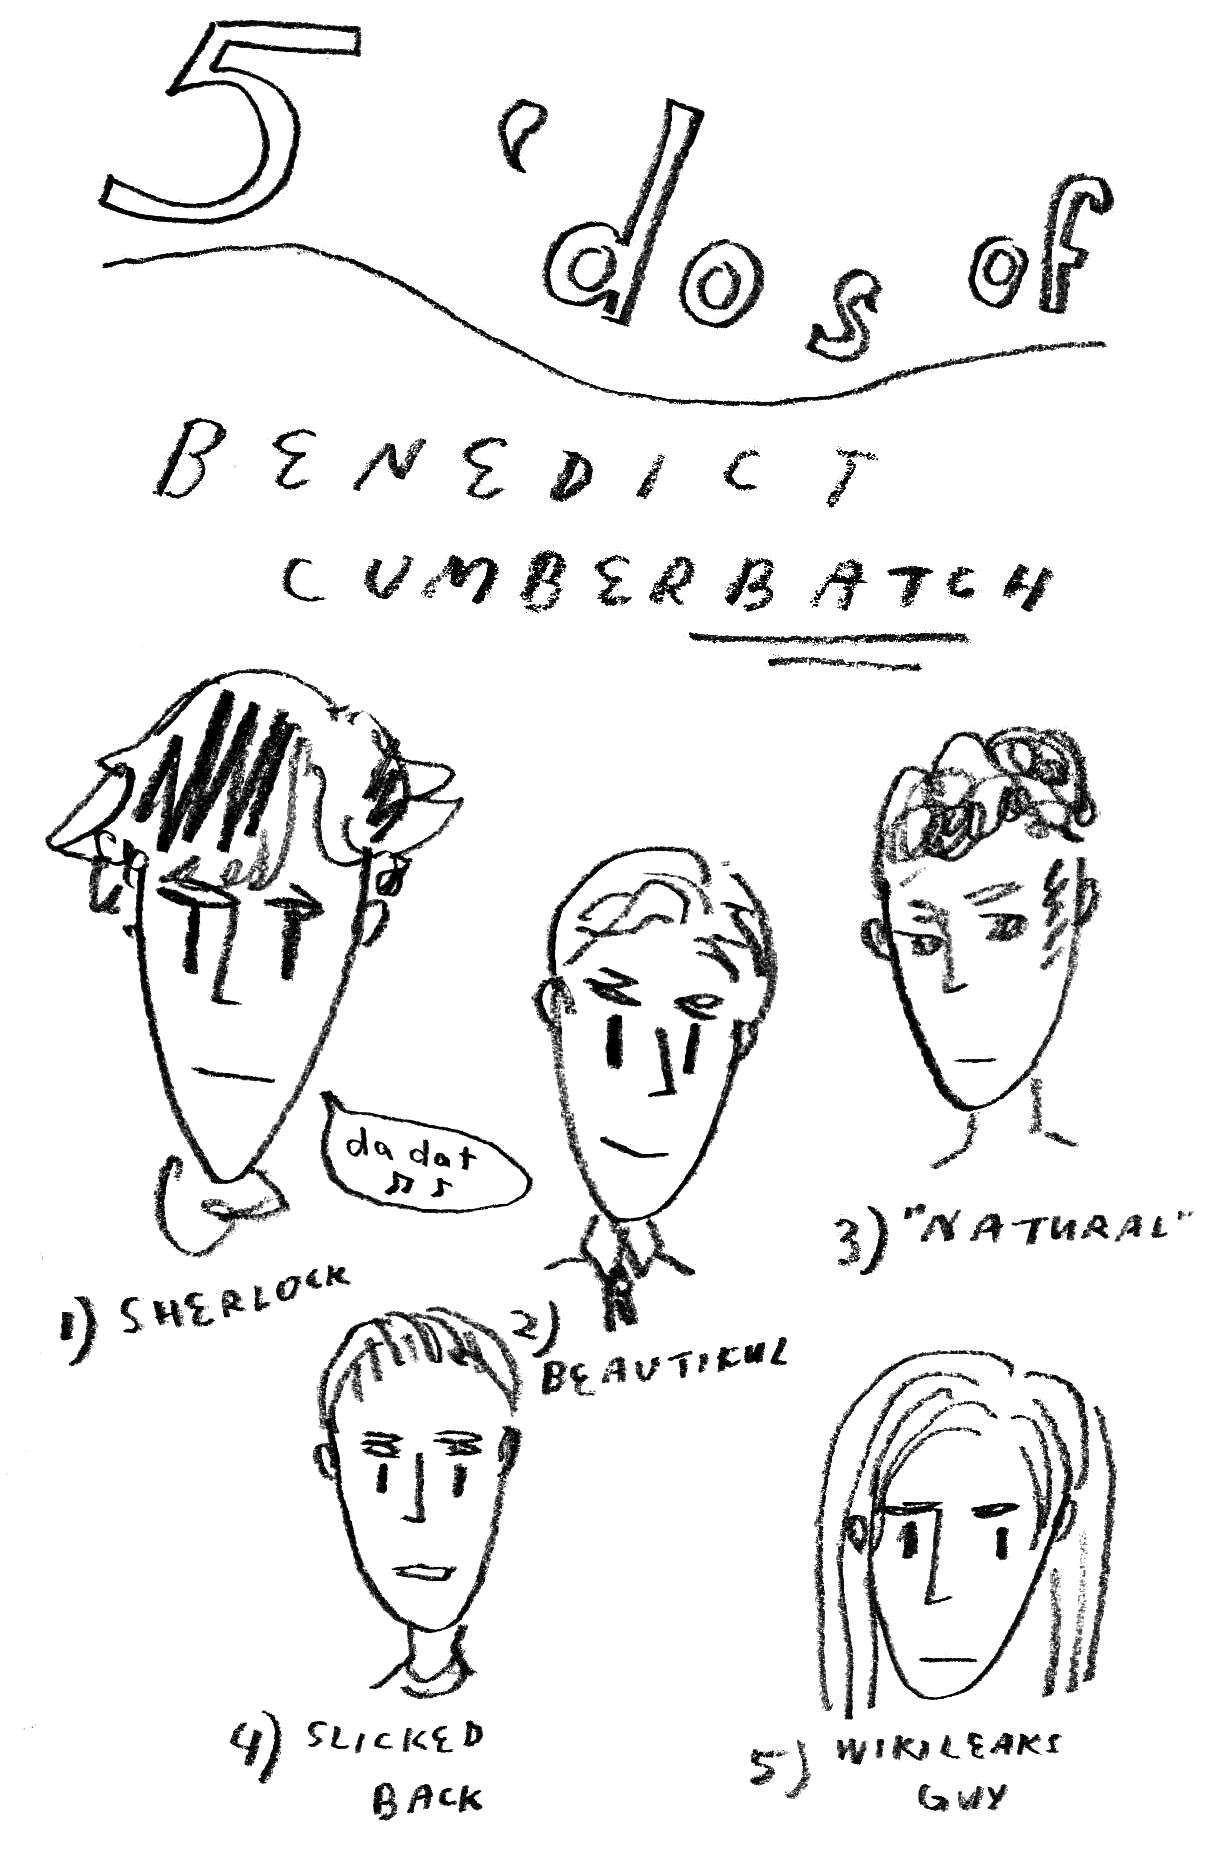 5 'dos of
BENEDICT
CUMBERBATCH
da dat
1) SHERLOCK
2)
BEAUTIKUL
3) "NATURAL"
4) SLICKED
BACK
5) WIKILEAKS
GUY